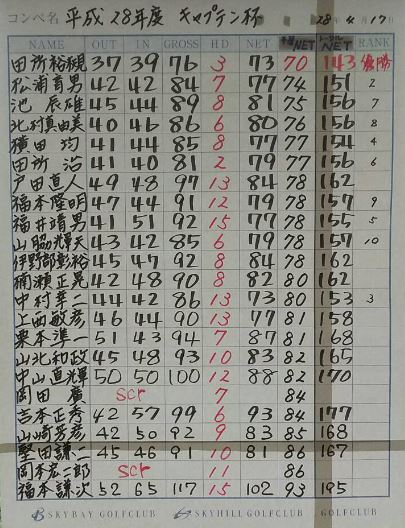 コンペ名 平成28年度 キャプテン杯 28年4月17日
NAME OUT IN GROSS HD NET 予選NET トータルNET RANK
田所裕規 37 39 76 3 73 70 143 優勝
松浦育男 42 42 84 7 77 74 151 2
池 辰雄 45 44 89 8 81 75 156 7
北村真由美 40 46 86 6 80 76 156 8
横田 均 41 44 85 8 77 77 154 4
田所 浩 41 40 81 2 79 77 156 6
戸田直人 49 48 97 13 84 78 162
福本隆明 47 44 91 12 79 78 157 9
福井靖男 41 51 92 15 77 78 155 5
山脇輝夫 43 42 85 6 79 78 157 10
伊野部彰裕 45 47 92 8 84 78 162
楠瀬正晃 42 48 90 8 82 80 162
中村幸二 44 42 86 13 73 80 153 3
上西敏彦 46 44 90 13 77 81 158
栗本準一 51 43 94 7 87 81 168
山北和政 45 48 93 10 83 82 165
中山直輝 50 50 100 12 88 82 170
岡田 廣 scr 7 84
吉本正秀 42 57 99 6 93 84 177
山崎芳彦 42 50 92 9 83 85 168
堅田謙二 45 46 91 10 81 86 167
岡本宏二郎 scr 11 86
福本謙次 52 65 117 15 102 93 195
SKYBAY GOLFCLUB SKYHILL GOLFCLUB